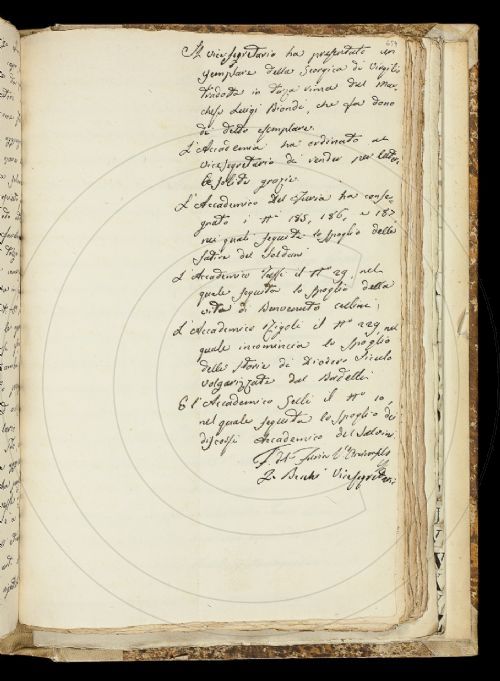 634
Il vicesegretario ha presentato un
esemplare della Georgica di Virgilio
tradotta in terza rima dal Mar-
chese Luigi Biondi, che fa dono
di detto esemplare.
L'Accademia ha ordinato al
vicesegretario di render per lettera
le solite grazie.
L'Accademico Del Furia ha conse-
gnato i Nⁱ 185, 186, e 187
nei quali seguita lo spoglio delle
Satire del Soldani
L'Accademico Tassi il N° 29. nel
quale seguita lo spoglio della
vita di Benvenuto Cellini;
L'Accademico Rigoli il N° 229, nel
quale incomincia lo spoglio
delle Storie di Diodoro Siculo
volgarizzate dal Baldelli.
E l'Accademico Gelli il N° 10,
nel quale seguita lo spoglio dei
discorsi Accademici del Salvini.
F. del Furia
F. Becchi Vicesegretario